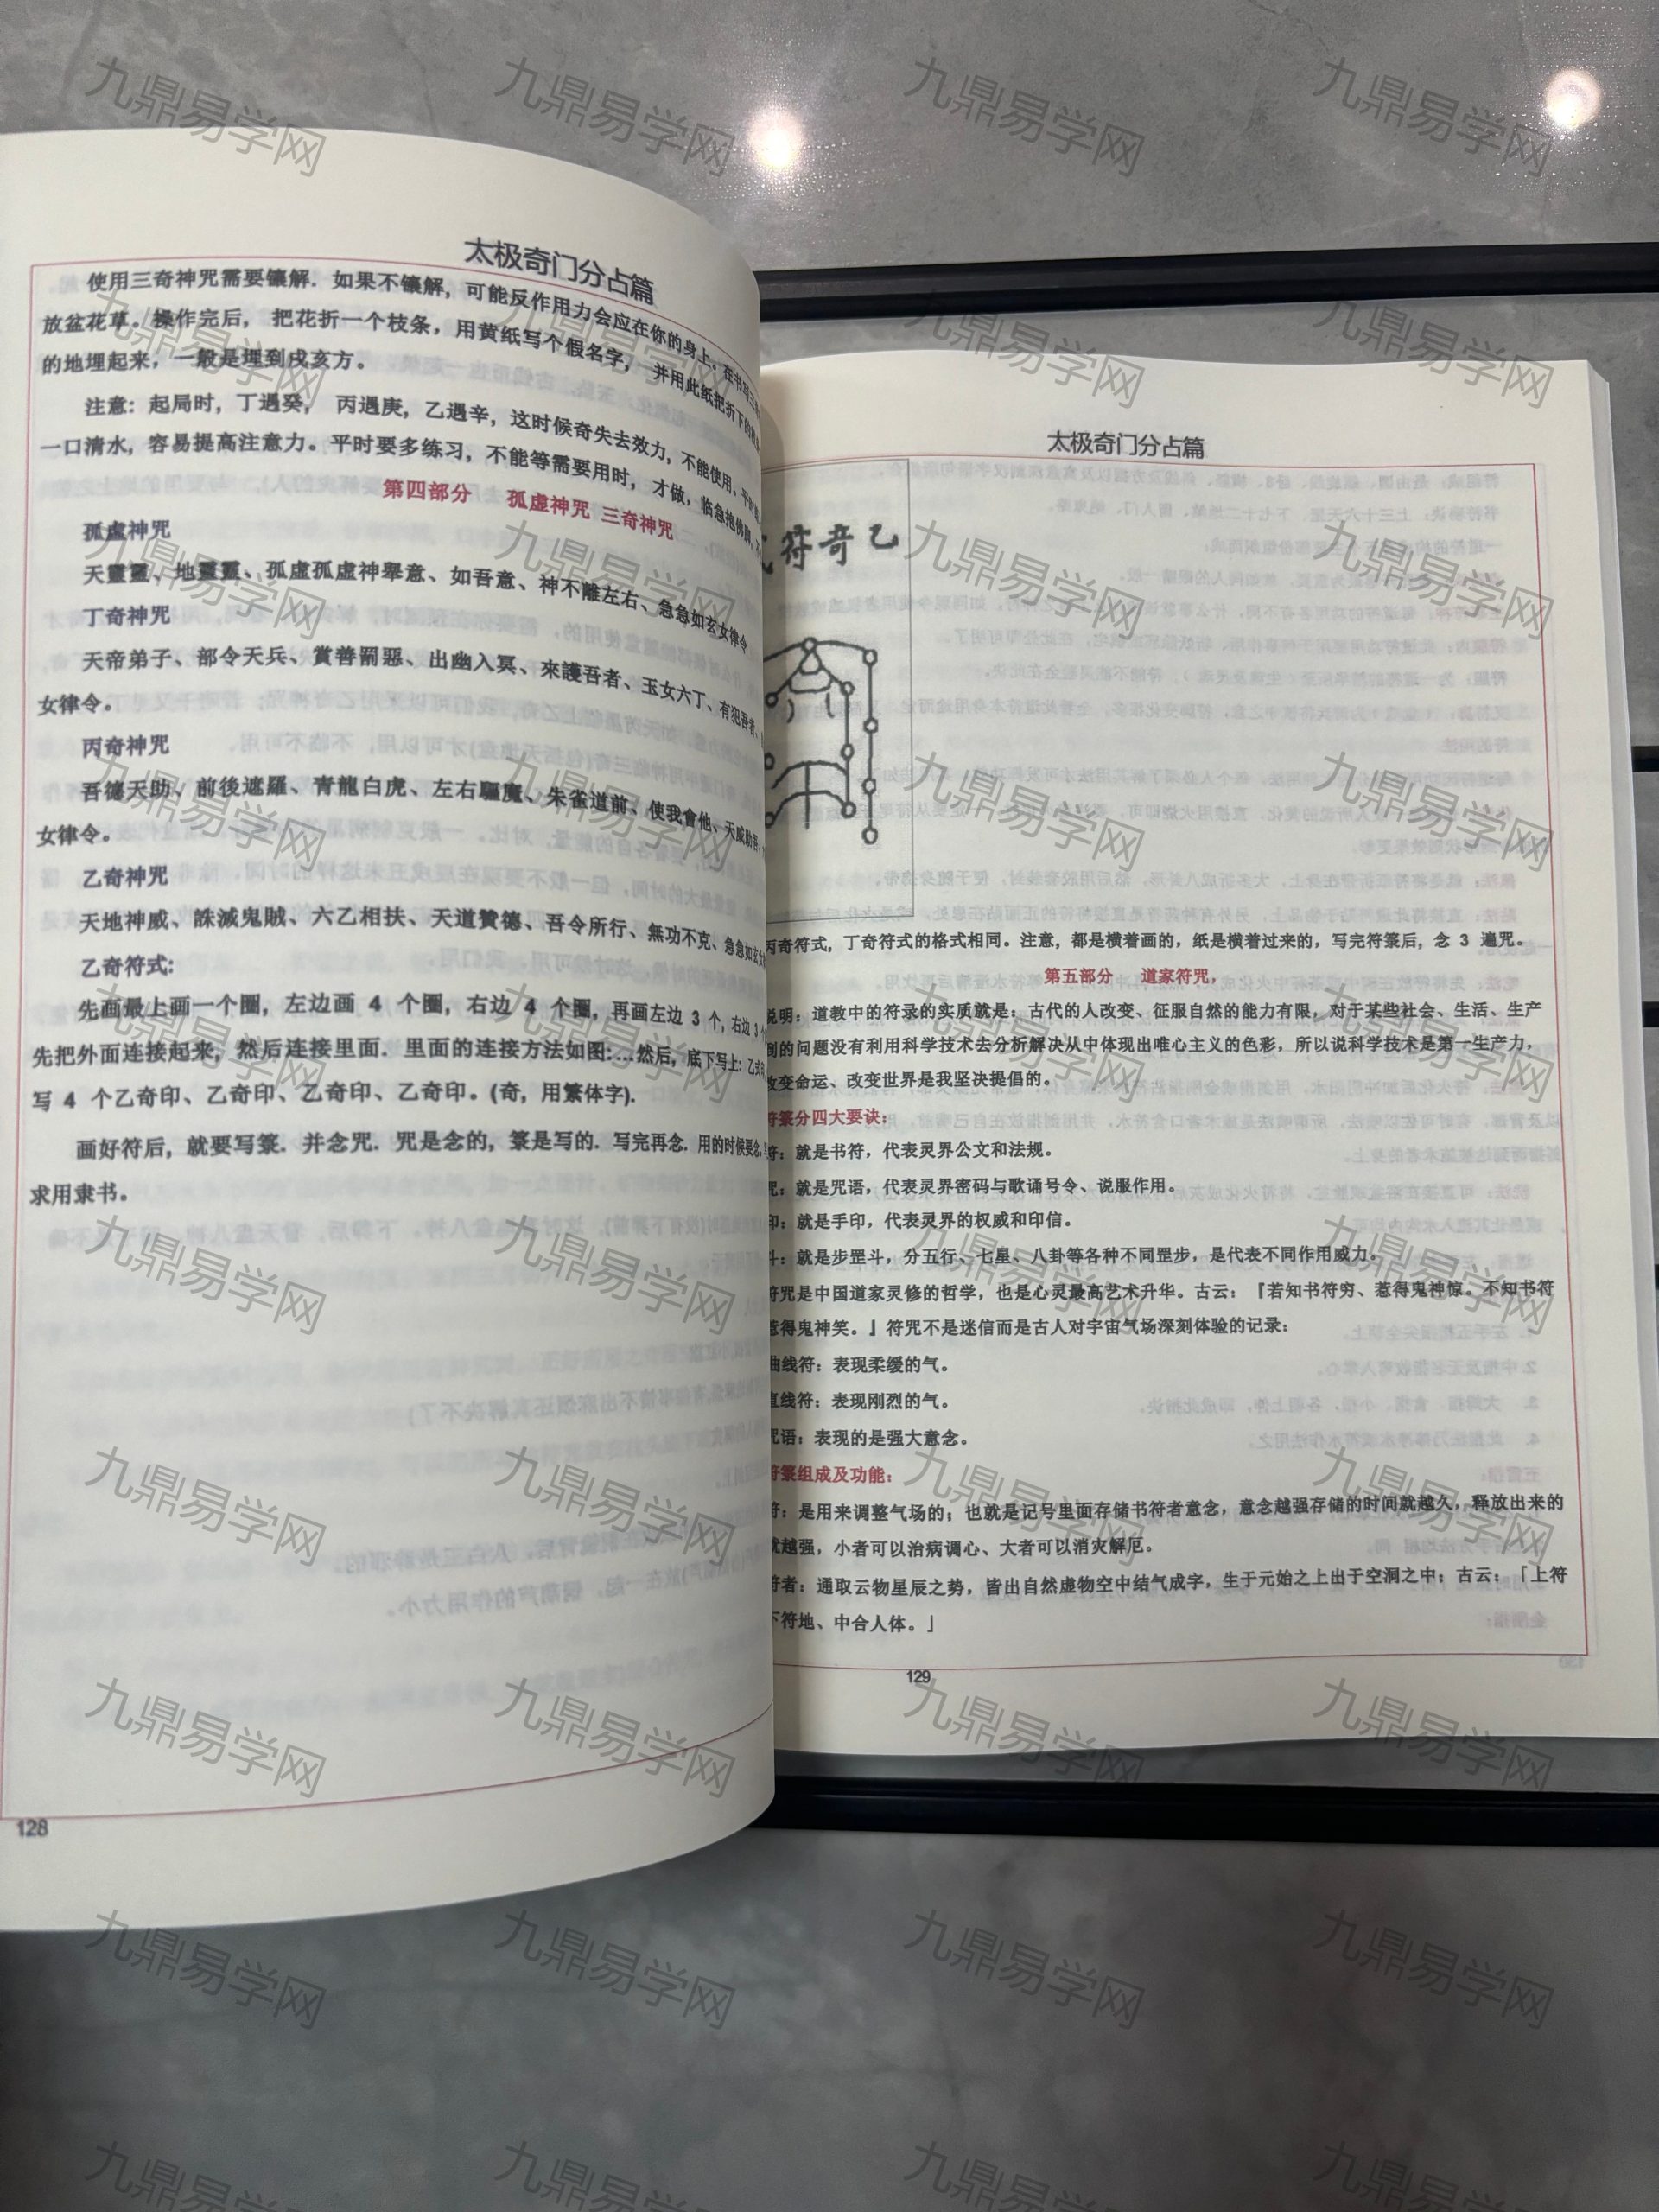 太极奇门分占篇
使用三奇神咒需要镶解. 如果不镶解, 可能反作用力会应在你的身上. 在书写三
放盆花草。操作完后, 把花折一个枝条, 用黄纸写个假名字, 并用此纸把折下的
的地埋起来, 一般是埋到戌亥方。
注意: 起局时, 丁遇癸, 丙遇庚, 乙遇辛, 这时候奇失去效力, 不能使用、平时
一口清水, 容易提高注意力。平时要多练习, 不能等需要用时, 才做, 临急抱佛脚,
第四部分 孤虚神咒 三奇神咒
孤虚神咒
天靈靈、地靈靈、孤虚孤虚神舉意、如吾意、神不離左右、急急如玄女律令
丁奇神咒
天帝弟子、部令天兵、賞善罰惡、出幽入冥、來護吾者、玉女六丁、有犯吾者、
女律令。
丙奇神咒
吾德天助、前後遮羅、青龍白虎、左右驅魔、朱雀道前、使我會他、天威助吾、
女律令。
乙奇神咒
天地神威、誅滅鬼賊、六乙相扶、天道贊德、吾令所行、無功不克、急急如玄
乙奇符式:
先画最上画一个圈, 左边画 4 个圈, 右边 4 个圈, 再画左边 3 个, 右边 3
先把外面连接起来, 然后连接里面. 里面的连接方法如图:...然后, 底下写上: 乙式
写 4 个乙奇印、乙奇印、乙奇印、乙奇印。(奇, 用繁体字).
画好符后, 就要写箓. 并念咒. 咒是念的, 箓是写的. 写完再念. 用的时候要念,
求用隶书。
128
太极奇门分占篇
符奇乙
丙奇符式, 丁奇符式的格式相同。注意, 都是横着画的, 纸是横着过来的, 写完符箓后, 念 3 遍咒。
第五部分 道家符咒,
说明: 道教中的符录的实质就是: 古代的人改变、征服自然的能力有限, 对于某些社会、生活、生产
到的问题没有利用科学技术去分析解决从中体现出唯心主义的色彩, 所以说科学技术是第一生产力,
改变命运、改变世界是我坚决提倡的。
符箓分四大要诀:
符: 就是书符, 代表灵界公文和法规。
咒: 就是咒语, 代表灵界密码与歌诵号令、说服作用。
印: 就是手印, 代表灵界的权威和印信。
斗: 就是步罡斗, 分五行、七星、八卦等各种不同罡步, 是代表不同作用威力。
符咒是中国道家灵修的哲学, 也是心灵最高艺术升华。古云: 『若知书符穷、惹得鬼神惊。不知书符
惹得鬼神笑。』符咒不是迷信而是古人对宇宙气场深刻体验的记录:
曲线符: 表现柔缓的气。
直线符: 表现刚烈的气。
咒语: 表现的是强大意念。
符箓组成及功能:
符: 是用来调整气场的; 也就是记号里面存储书符者意念, 意念越强存储的时间就越久, 释放出来的
就越强, 小者可以治病调心、大者可以消灾解厄。
符者: 通取云物星辰之势, 皆出自然虚物空中结气成字, 生于元始之上出于空洞之中; 古云: 「上符
下符地、中合人体。」
129
九鼎易学网